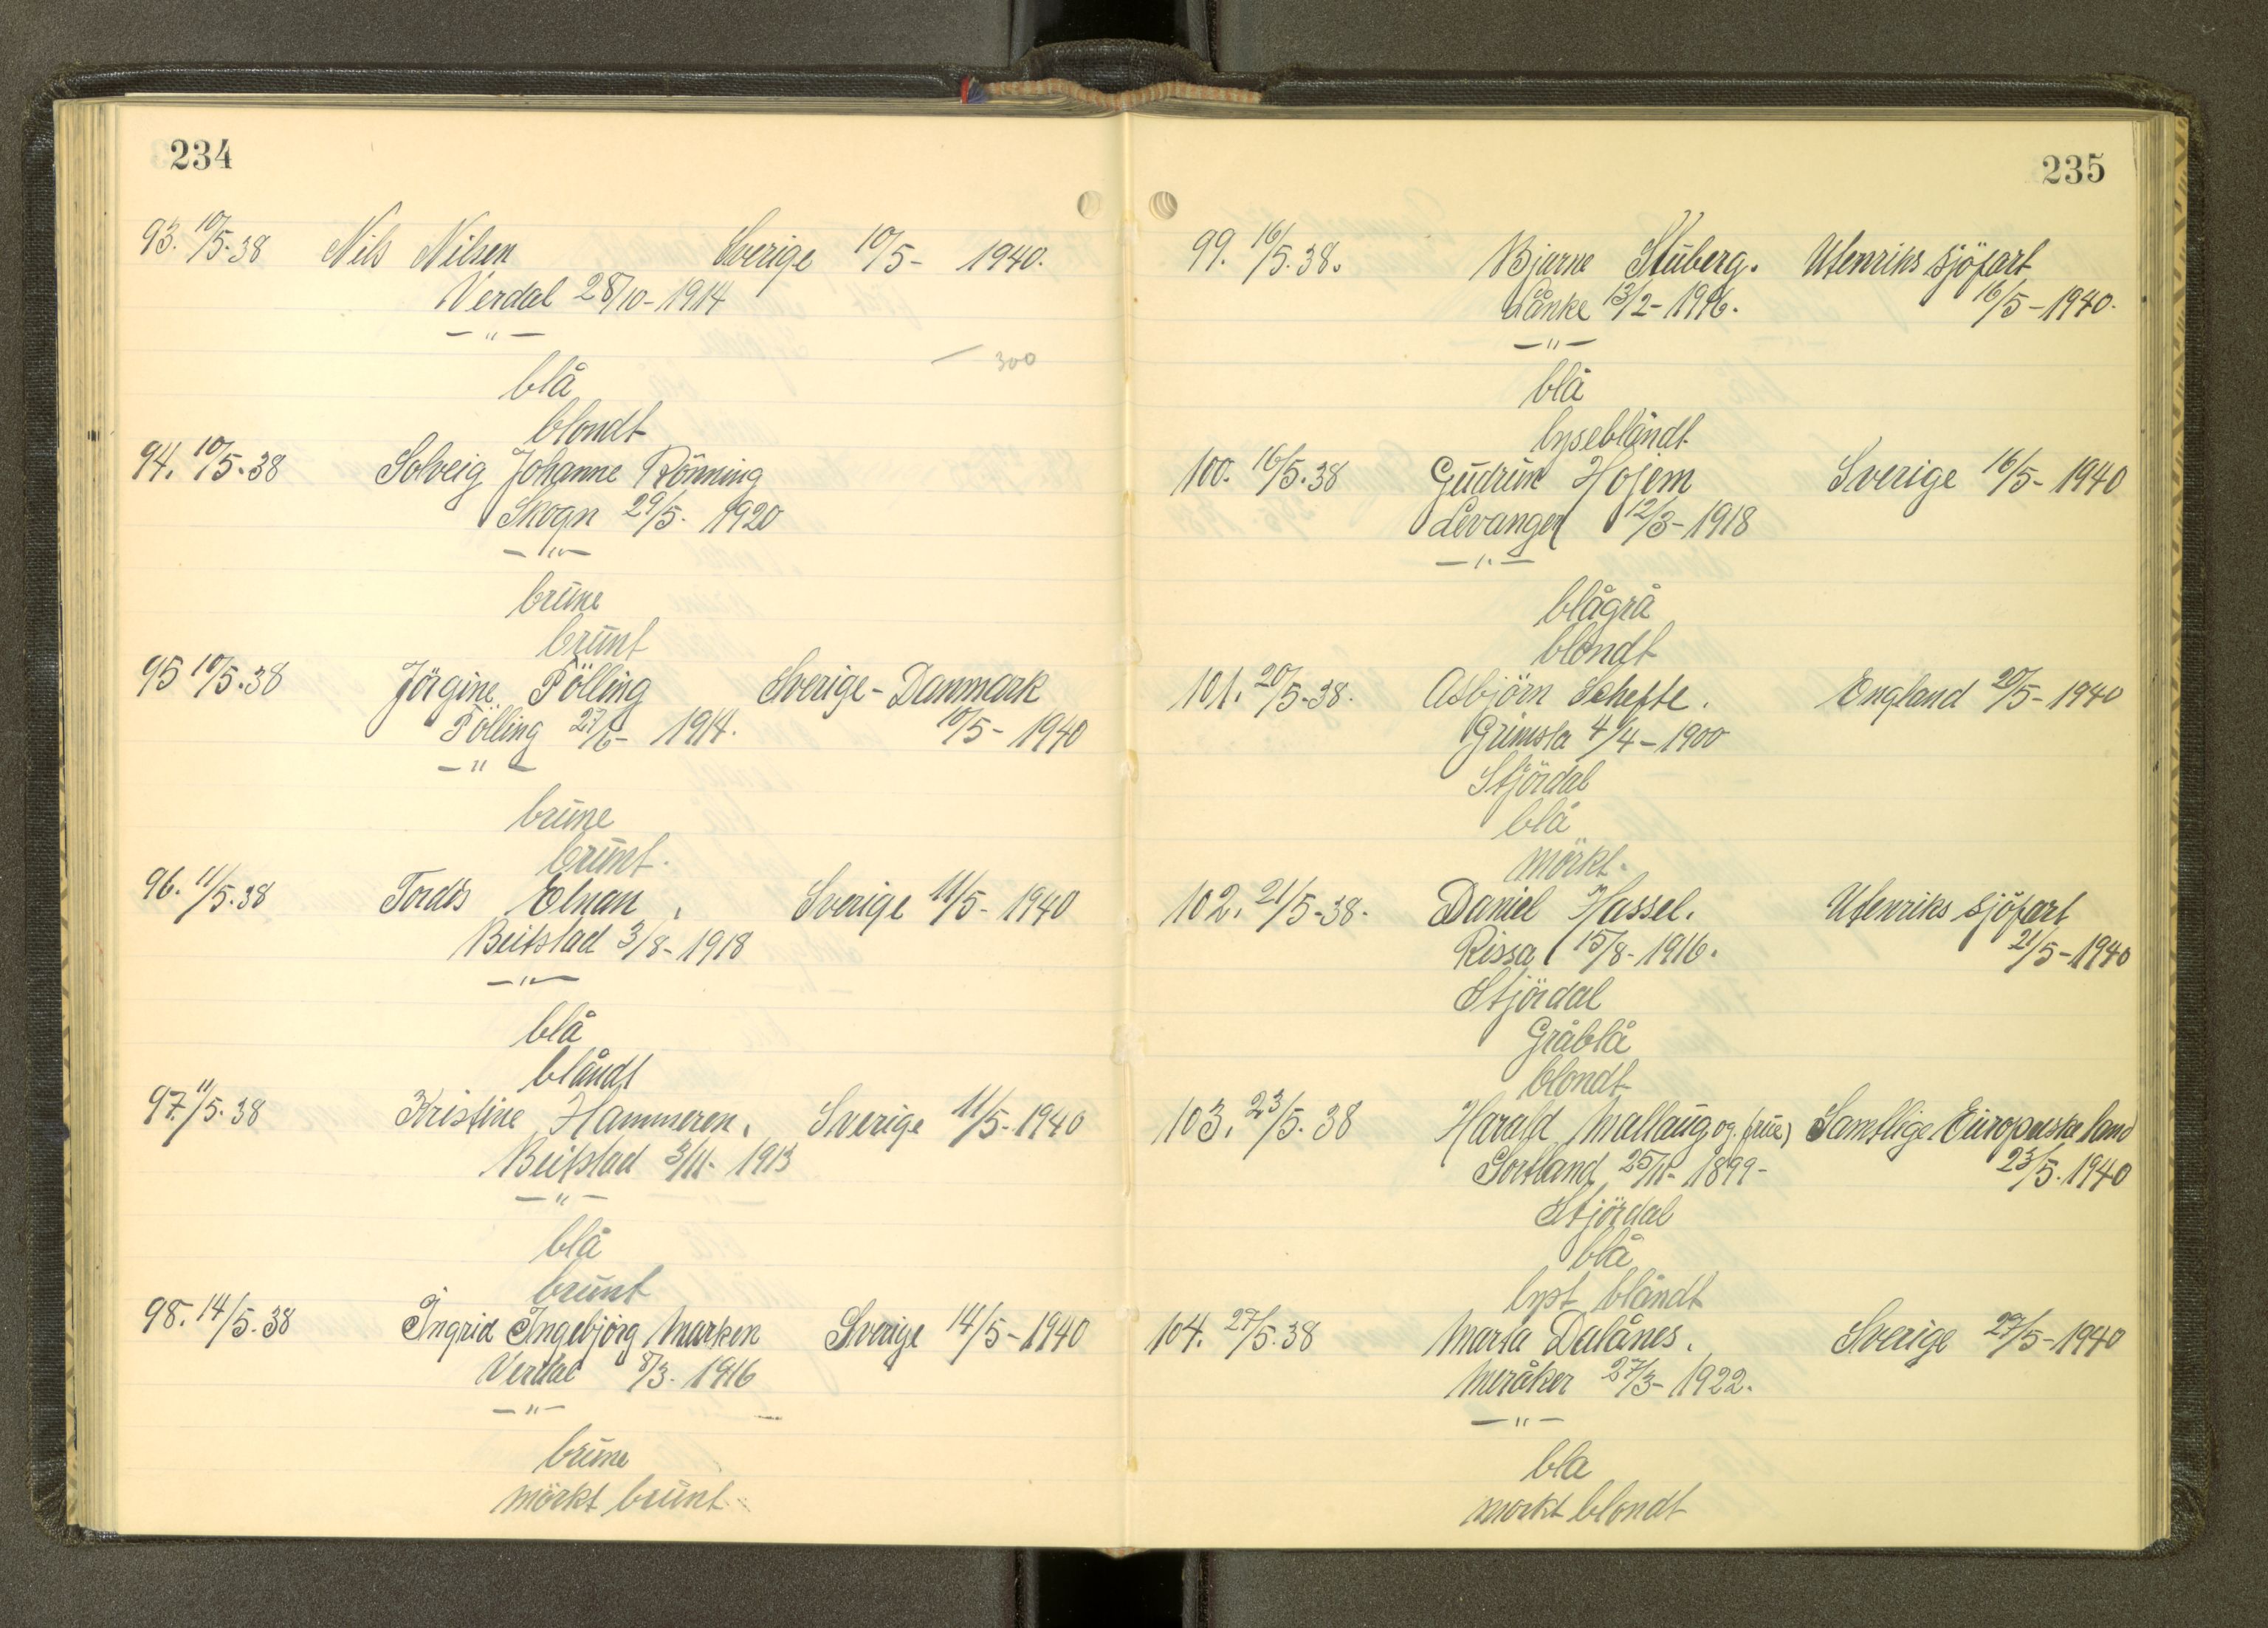 234
93. 10/5-38 Nils Nilsen Sverige 10/5- 1940.
Verdal 28/10-1914
— " —
— 300
blå
blondt
94. 10/5-38 Solveig Johanne Rönning
Skogn 29/5- 1920
— " —
brune
brunt
95 10/5-38 Jörgine Fölling Sverige-Danmark
Fölling 27/6- 1914. 10/5- 1940
— " —
brune
brunt.
96. 11/5-38 Tordis Elnan. Sverige 11/5- 1940
Beitstad 3/8-1918
— " —
blå
blåndt
97. 11/5-38 Kristine Hammeren. Sverige 11/5-1940
Beitstad 3/11- 1913
— " —
blå
brunt
98. 14/5-38 Ingrid Ingebjörg Marken Sverige 14/5-1940
Verdal 8/3- 1916
— " —
brune
mörkt brunt
235
99. 16/5.38. Bjarne Stuberg. Utenriks sjöfart
Lånke 13/2-1916. 16/5-1940.
— " —
blå
lyseblåndt
100. 16/5.38 Gudrun Hojem Sverige 16/5- 1940
Levanger 12/3-1918
— " —
blågrå
blondt
101. 20/5-38. Asbjörn Schefte. England 20/5-1940
Grimsta 4/4-1900
Stjördal
blå
mörkt.
102. 21/5-38. Daniel Hassel. Utenriks sjöfart
Rissa 15/8-1916. 21/5-1940
Stjördal
Gråblå
blondt
103. 23/5.38 Harald Mallaug og frue) Samtlige Europeiske land
Sortland 25/11- 1899- 23/5.1940
Stjördal
blå
lyst blåndt
104. 27/5.38 Marta Dalånes. Sverige 27/5-1940
Meråker 27/3- 1922.
— " —
bla
morkt blondt